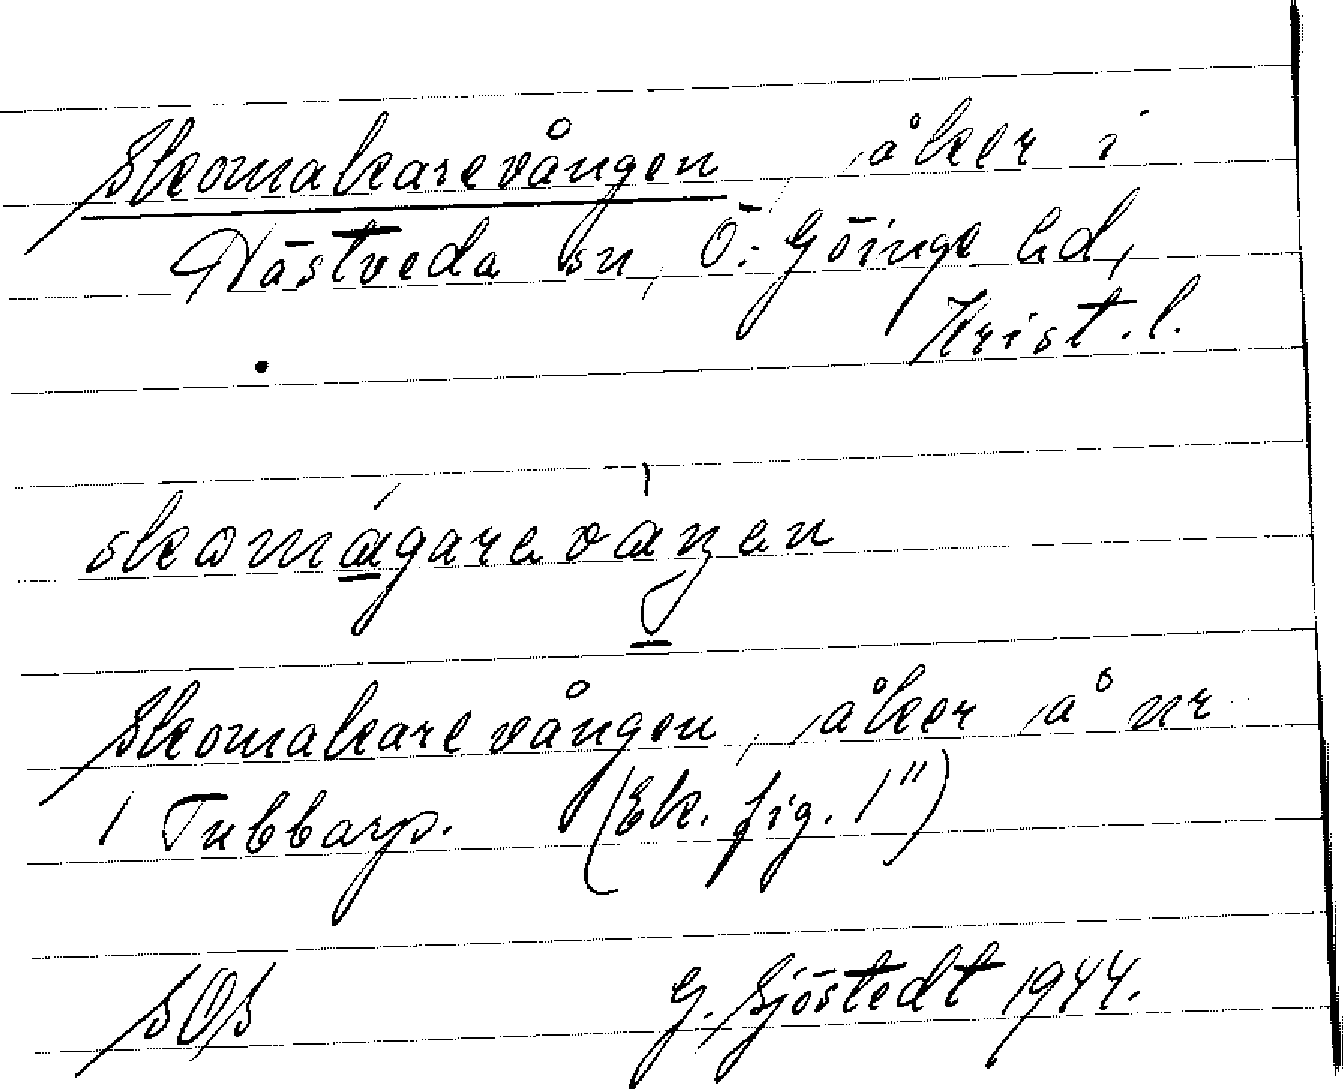 Skomakarevången åker i
Nästveda sn, Ö. Göinge hd,
Krist. l.
skomágarevaŋen
Skomakarevången, åker å nr
1 Tubbarp. (Ek. fig. 1")
SOS G. Sjöstedt 1944.